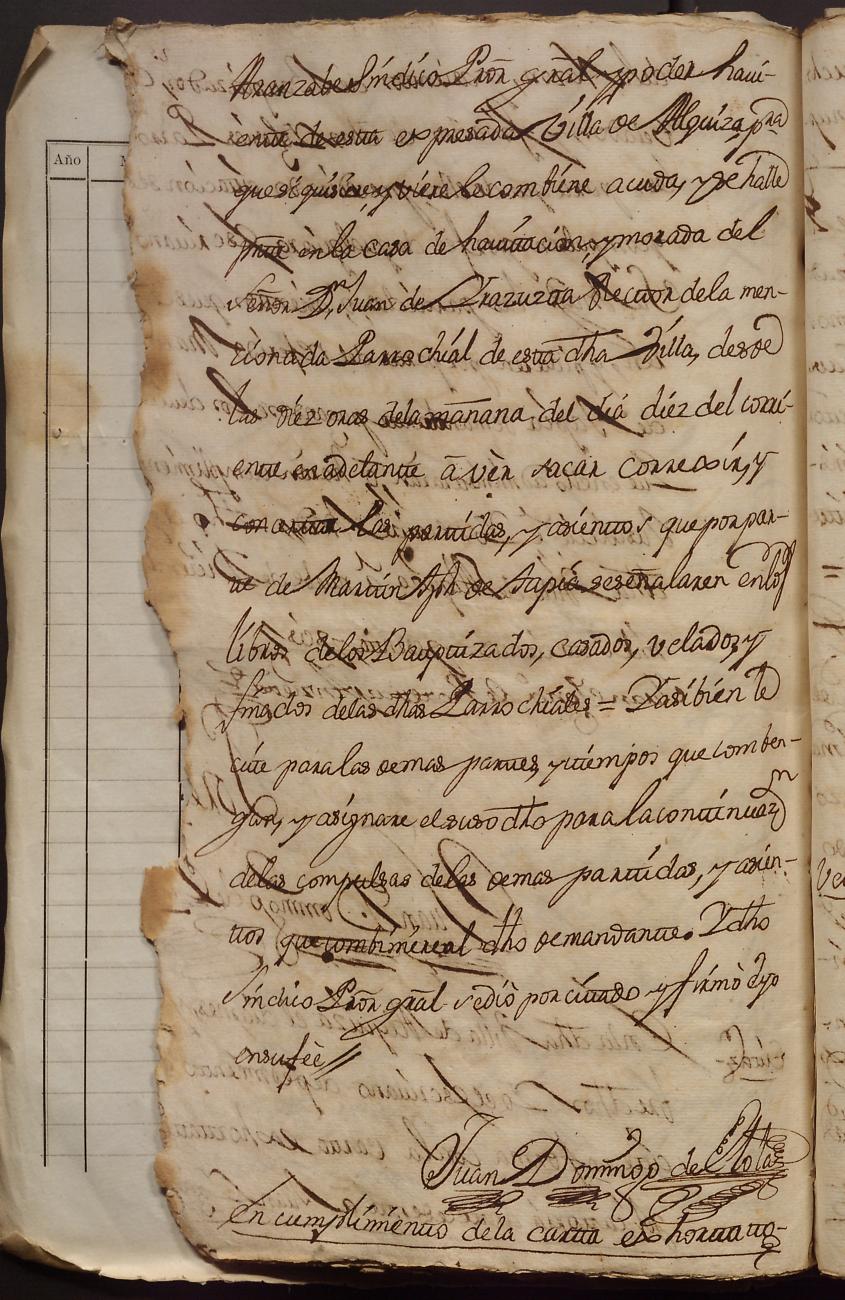 Año
Aranzabe Síndico Pror. gral. y poder havi-
ente de esta expresada Villa de Alquiza, pra.
que si quisiere, y viere le combiene acuda, y se halle
pnte en la casa de havitacion, y morada del
Señor Dn. Juan de Vrazuzta Rector de la men-
cionada Parrochial de esta dha Villa, desde
las diez oras de la mañana del dia diez del corri-
ente en adelante à vèr sacar correxir, y
las partidas, y asientos que por par-
te de Martin Jph de se señalaren en los
libros de los Bauptizados, casados, velados, y
finados de las dhas Parrochiales = Y asibien le
cite para las demas partes, y tiempos que comben-
gan, y asignare el suso dho para la continuazn
de las compulsas de las demas partidas, y asien-
tos que combiniere al dho demandante. Y dho
Síndico Pror. gral. se diò por citado y firmò è yo
en su fèe //
Juan Domingo de
En cumplimiento de la carta exhortato-